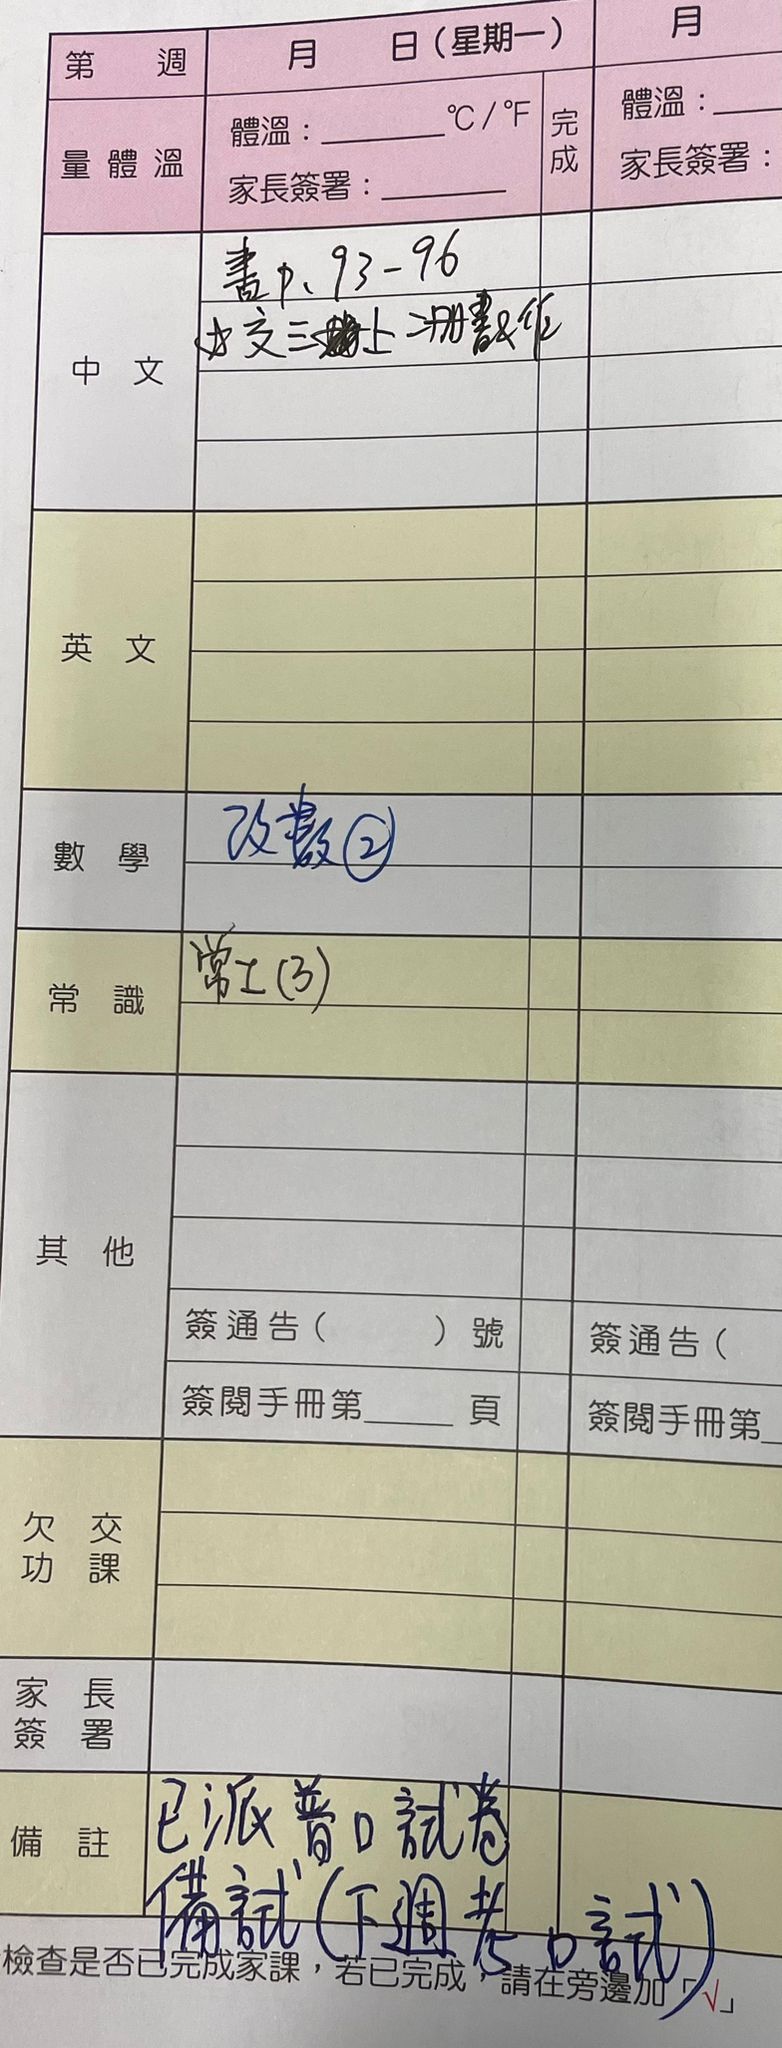 第 週 月 日(星期一) 月
量體溫 體溫:______°C/°F 完成 體溫:
家長簽署:______ 家長簽署:
中文 書p. 93-96
中文三上二冊書&作
英文
數學 改數②
常識 常士(3)
其他
簽通告( )號 簽通告(
簽閱手冊第____頁 簽閱手冊第
欠交功課
家長簽署
備註 已派普口試卷
備試(下週考口試)
檢查是否已完成家課,若已完成,請在旁邊加「√」